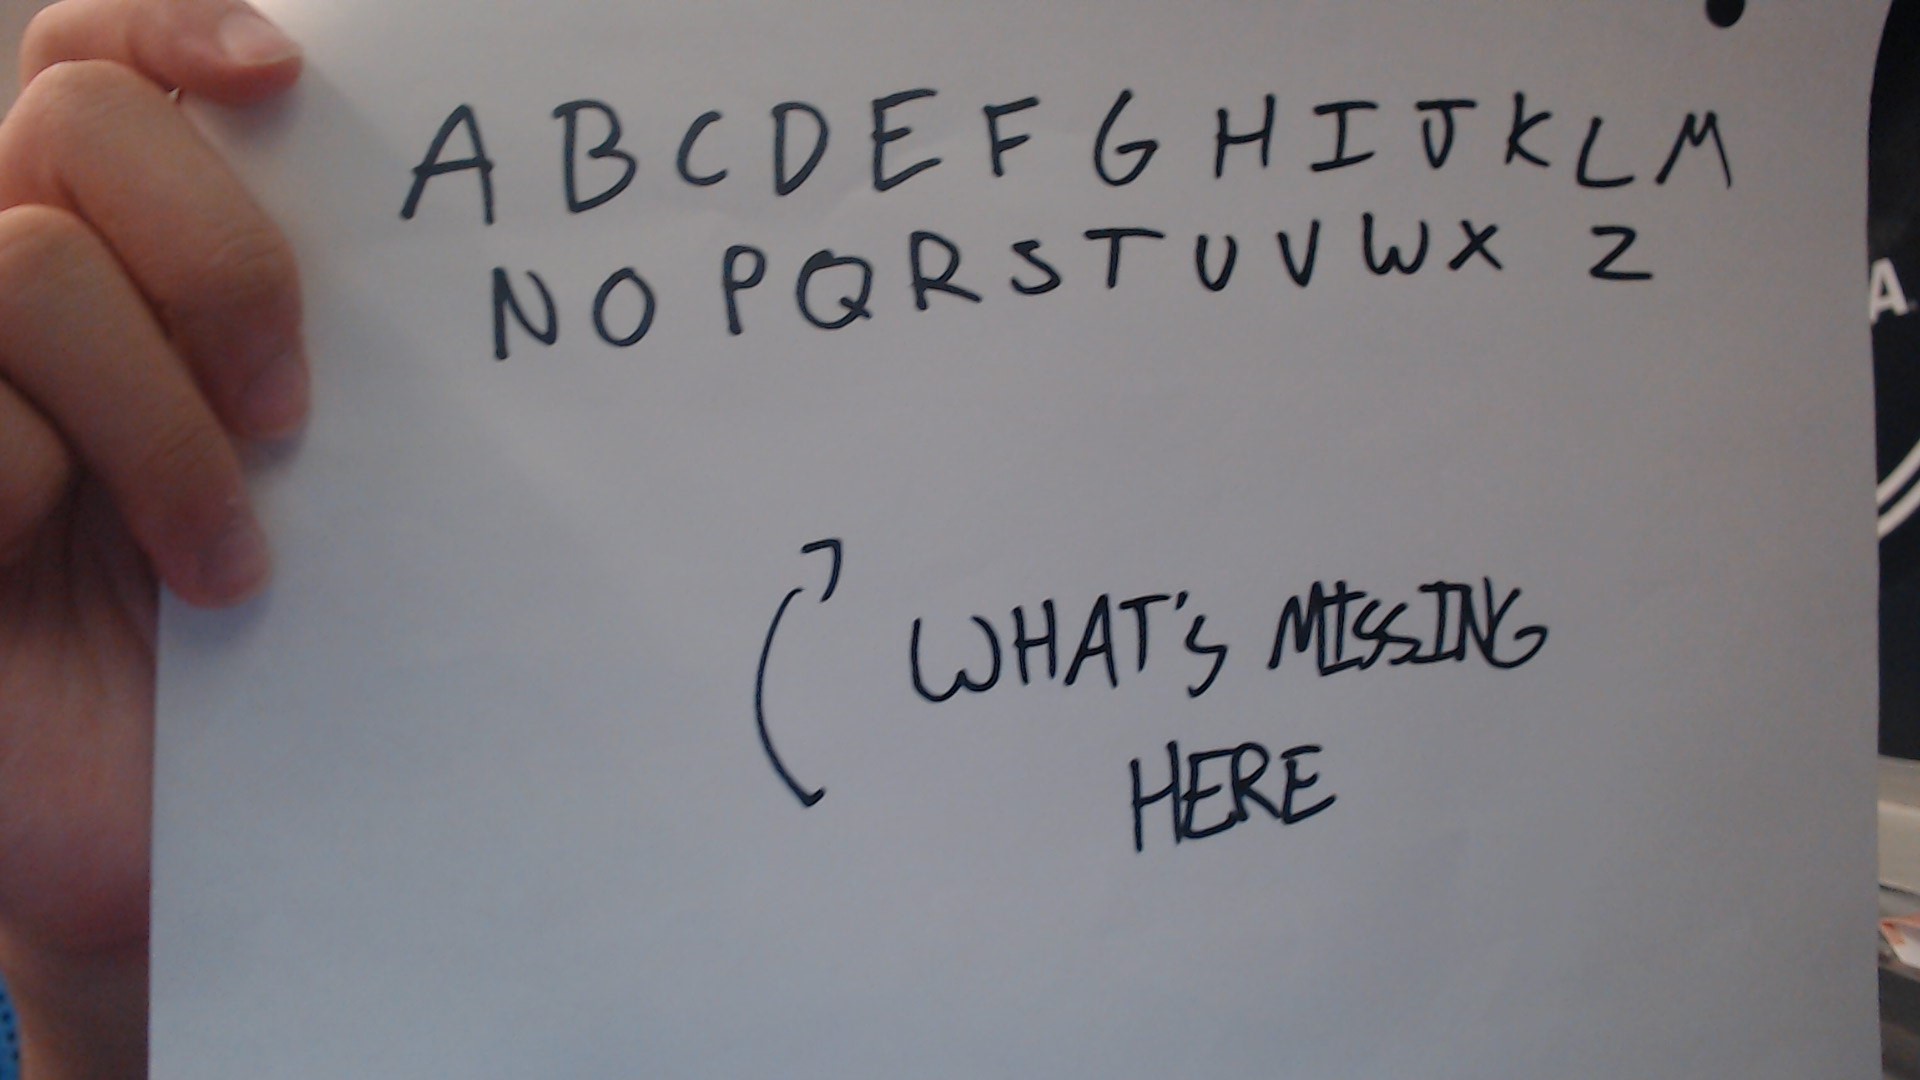 A B C D E F G H I J K L M
N O P Q R S T U V W X Z
WHAT'S MISSING
HERE
A